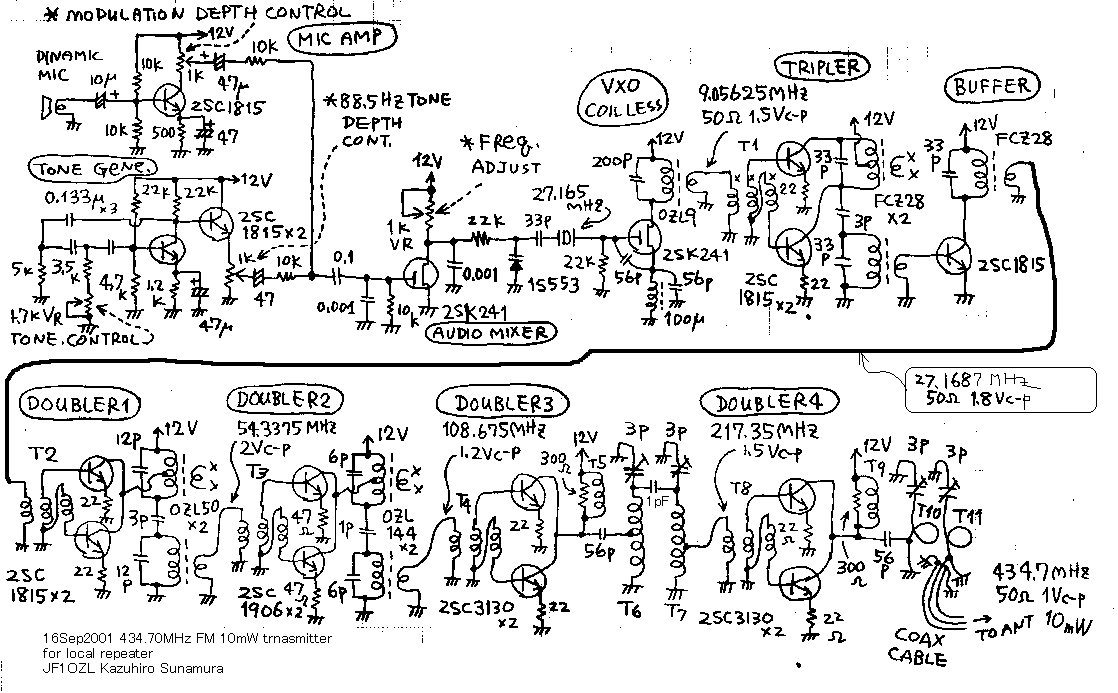 * MODULATION DEPTH CONTROL
12V
MIC AMP
DYNAMIC
MIC
10μ
+
10K
1K
+
47μ
10K
2SC1815
10K
500
47
TONE GENE.
22K
22K
12V
0.133μ
×3
2SC
1815×2
5K
3.5
K
4.7
K
1.2
K
47μ
1.7K VR
TONE. CONTROL
1K
47
10K
*88.5HzTONE
DEPTH
CONT.
0.1
0.001
10K
2SK241
AUDIO MIXER
* FREQ.
ADJUST
12V
1K
VR
22K
0.001
33P
1S553
27.165
MHz
VXO
COILLESS
12V
200P
OZL9
2SK241
22K
56P
56P
100μ
9.05625MHz
50Ω 1.5Vc-p
T1
TRIPLER
12V
33
P
22
FCZ28
×2
3P
33
P
22
2SC
1815×2
BUFFER
12V
33
P
FCZ28
2SC1815
27.1687 MHz
50Ω 1.8Vc-p
DOUBLER1
T2
12P
12V
22
OZL50
×2
3P
22
12P
2SC
1815×2
DOUBLER2
54.3375MHz
2Vc-p
T3
6P
12V
47
Ω
1P
OZL
144
×2
47
Ω
6P
2SC
1906×2
DOUBLER3
108.675MHz
1.2Vc-p
T4
22
22
2SC3130
×2
12V
300
Ω
T5
56P
3P
3P
1pF
T6
T7
DOUBLER4
217.35MHz
1.5Vc-p
T8
22
Ω
22
Ω
2SC3130
×2
12V
T9
300
Ω
56
P
3P
3P
T10
T11
COAX
CABLE
434.7MHz
50Ω 1Vc-p
TO ANT 10mW
16Sep2001 434.70MHz FM 10mW trnasmitter
for local repeater
JF1OZL Kazuhiro Sunamura